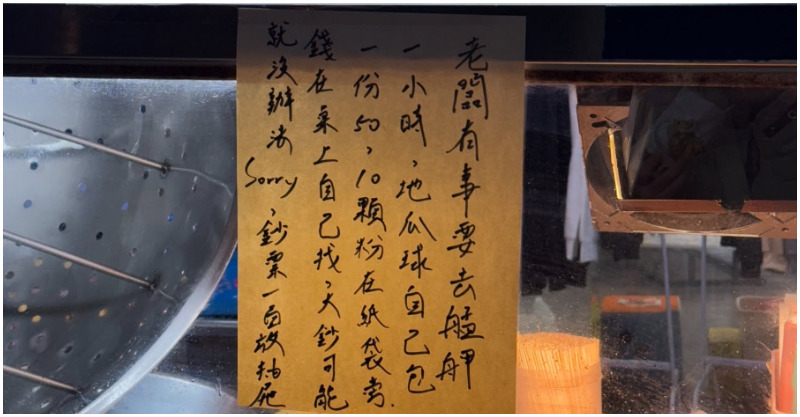 老闆有事要去艋舺
一小時，地瓜球自己包
一份50，10顆粉在紙袋旁.
錢在桌上自己找，大鈔可能
就沒辦法Sorry，鈔票一百放抽屜